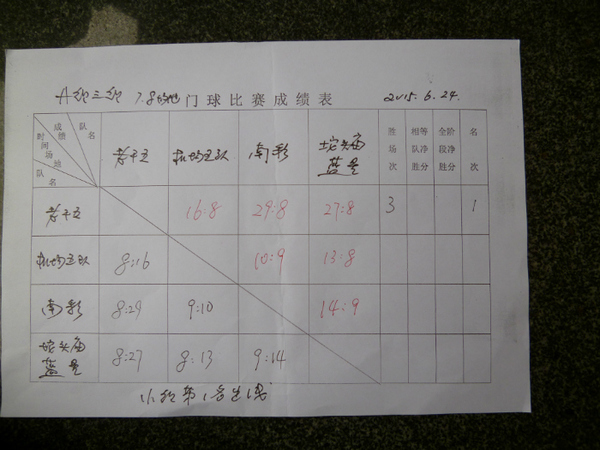 A级三组 7.8场地 门球比赛成绩表 2015.6.24.
成绩 队名
时间 场地
队名
老干五 机场五队 南彩 坨头庙蓝星 胜场次 相等队净胜分 全阶段净胜分 名次
老干五 16:8 29:8 27:8 3 1
机场五队 8:16 10:9 13:8
南彩 8:29 9:10 14:9
坨头庙蓝星 8:27 8:13 9:14
小组第1名出线